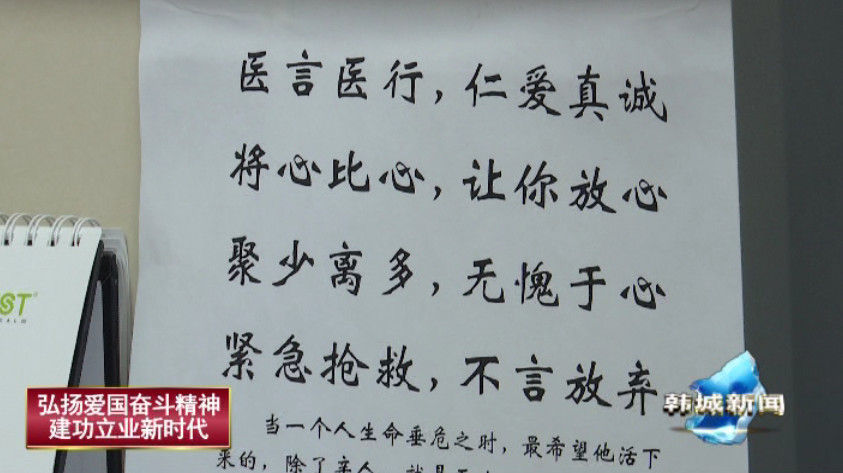 医言医行，仁爱真诚
将心比心，让你放心
聚少离多，无愧于心
紧急抢救，不言放弃
当一个人生命垂危之时，最希望他活下
来的，除了亲人，就是
ST
弘扬爱国奋斗精神
建功立业新时代
韩城新闻